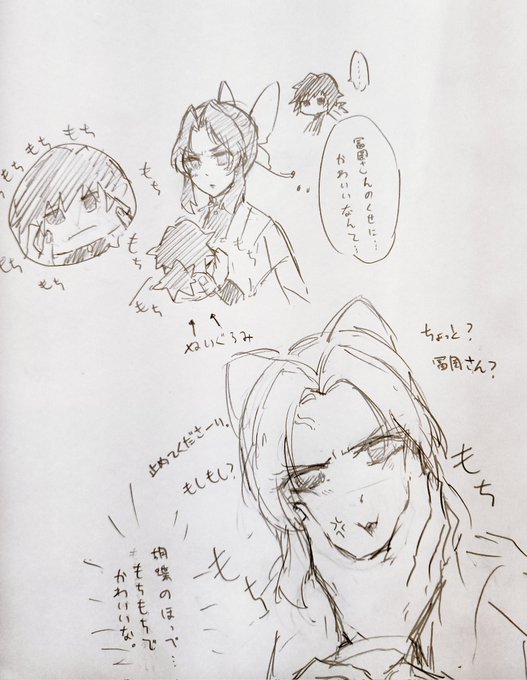 ……
冨岡さんのくせに…
かわいいなんて…
もち
もち
もち
もち
もち
もち
もち
もち
もち
もち
もち
↑↑
ぬいぐるみ
ちょっと?
冨岡さん?
止めてくださーい。
もしもし?
もち
もち
胡蝶のほっぺ…
もちもちで
かわいいな。